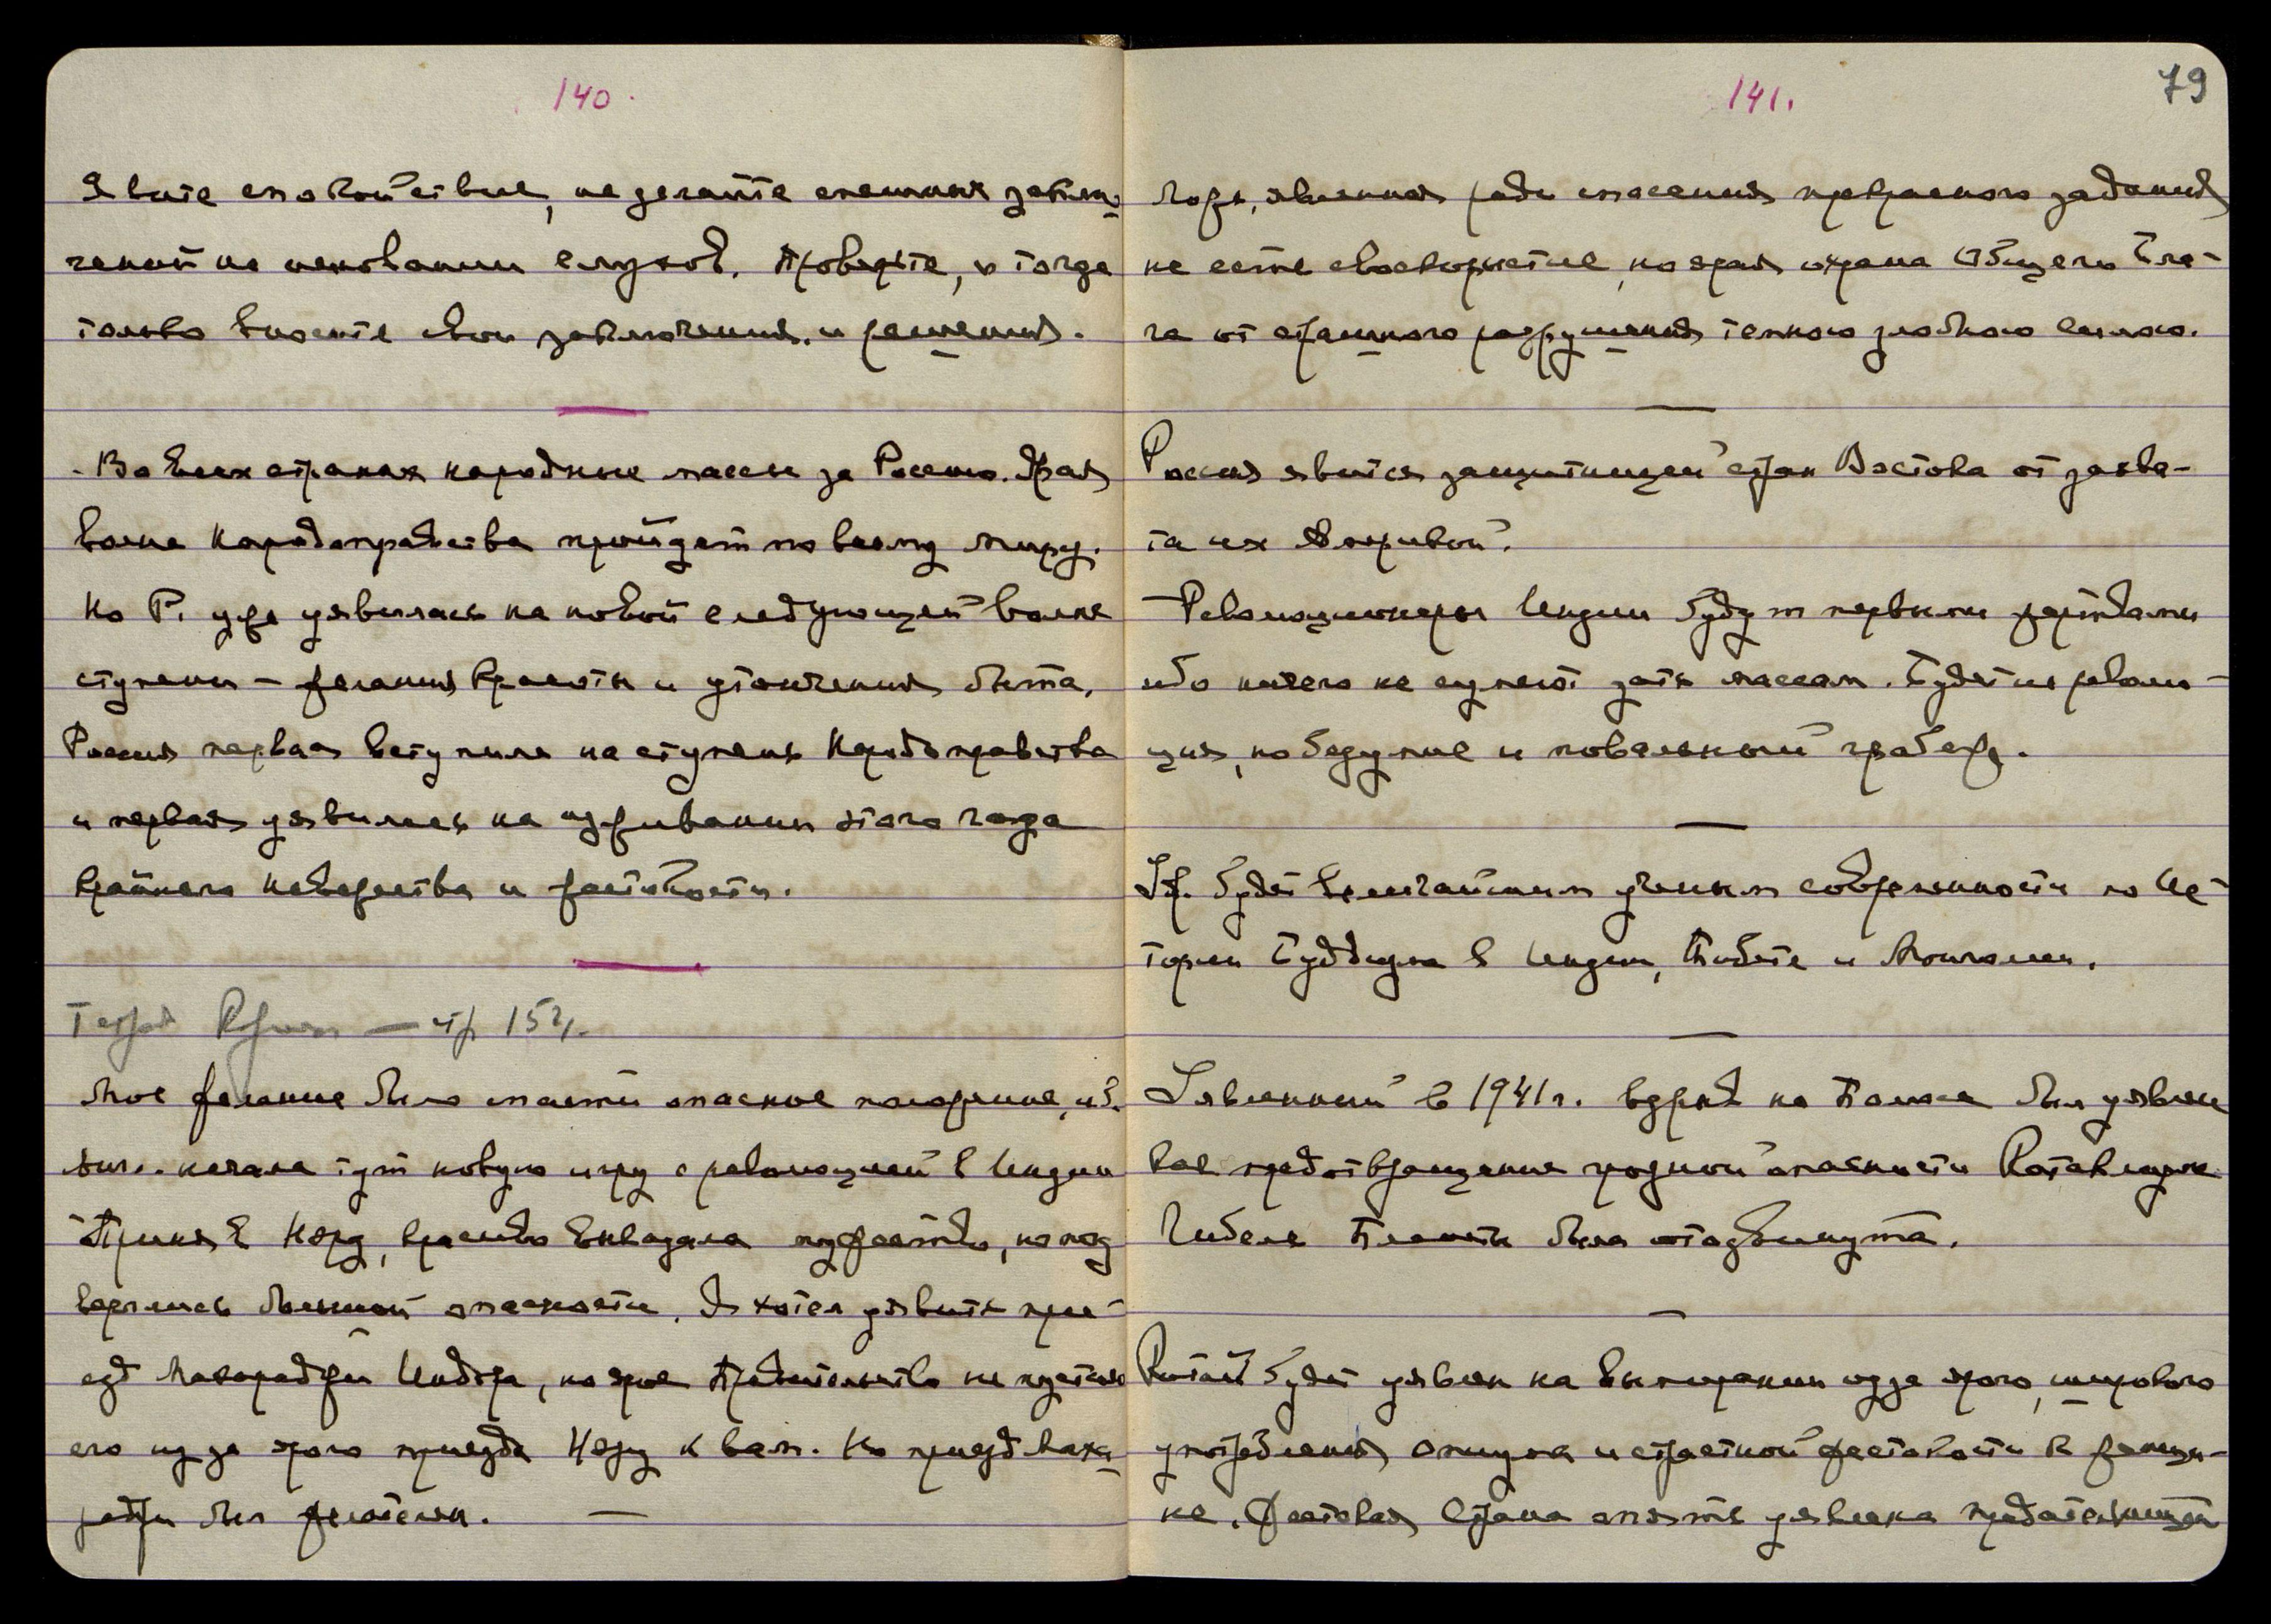 140.
Явите спокойствие, не делайте спешных заклю-
чений на основании слухов. Проверьте, и тогда
только вносите свои заключения и решения.
Во всех странах народные массы за Россию. Ярая
волна Народоправства пройдет по всему миру.
Но Р. уже уявилась на новой следующей волне
ступени – желания Красоты и утончения быта.
Россия первая вступила на ступень Народоправства
и первая уявилась на изживании этого
крайнего невежества и жестокости.
Тетрадь — стр 152.
Мое желание было спасти опасное положение, иб.
начала тут новую игру с революцией в Индии
Приняв Неру, красиво выказала мужество, но под
верглись большой опасности. Я хотел уявить при-
езд Магараджи Индора, но ярое Правительство не пустило
его из за ярого приезда Неру к вам. Но приезд Мага-
раджи был желателен.
141.
79
ложь, явленная ради спасения прекрасного задания
не есть своекорыстие, но ярая охрана Общего Бла-
га от страшного разрушения темного злобного сильного.
Россия явится защитницей стран Востока от захва-
та их Америкой.
Революционеры Индии будут первыми жертвами
ибо ничего не сумеют дать массам. Будет не револю-
ция, но безумие и повальный грабеж.
Ю. будет величайшим ученым современности по Ис-
тории Буддизма в Индии, Тибете и Монголии.
Уявленный в 1941 г. взрыв на Полюсе был уявлен
как предотвращение грозной опасности Катаклизма
Гибель Планеты была отодвинута.
Китай будет уявлен на вымирании из за ярого, широкого
употребления опиума и страстной жестокости к женщи-
не. Жестокая Страна опять уявлена предательницей